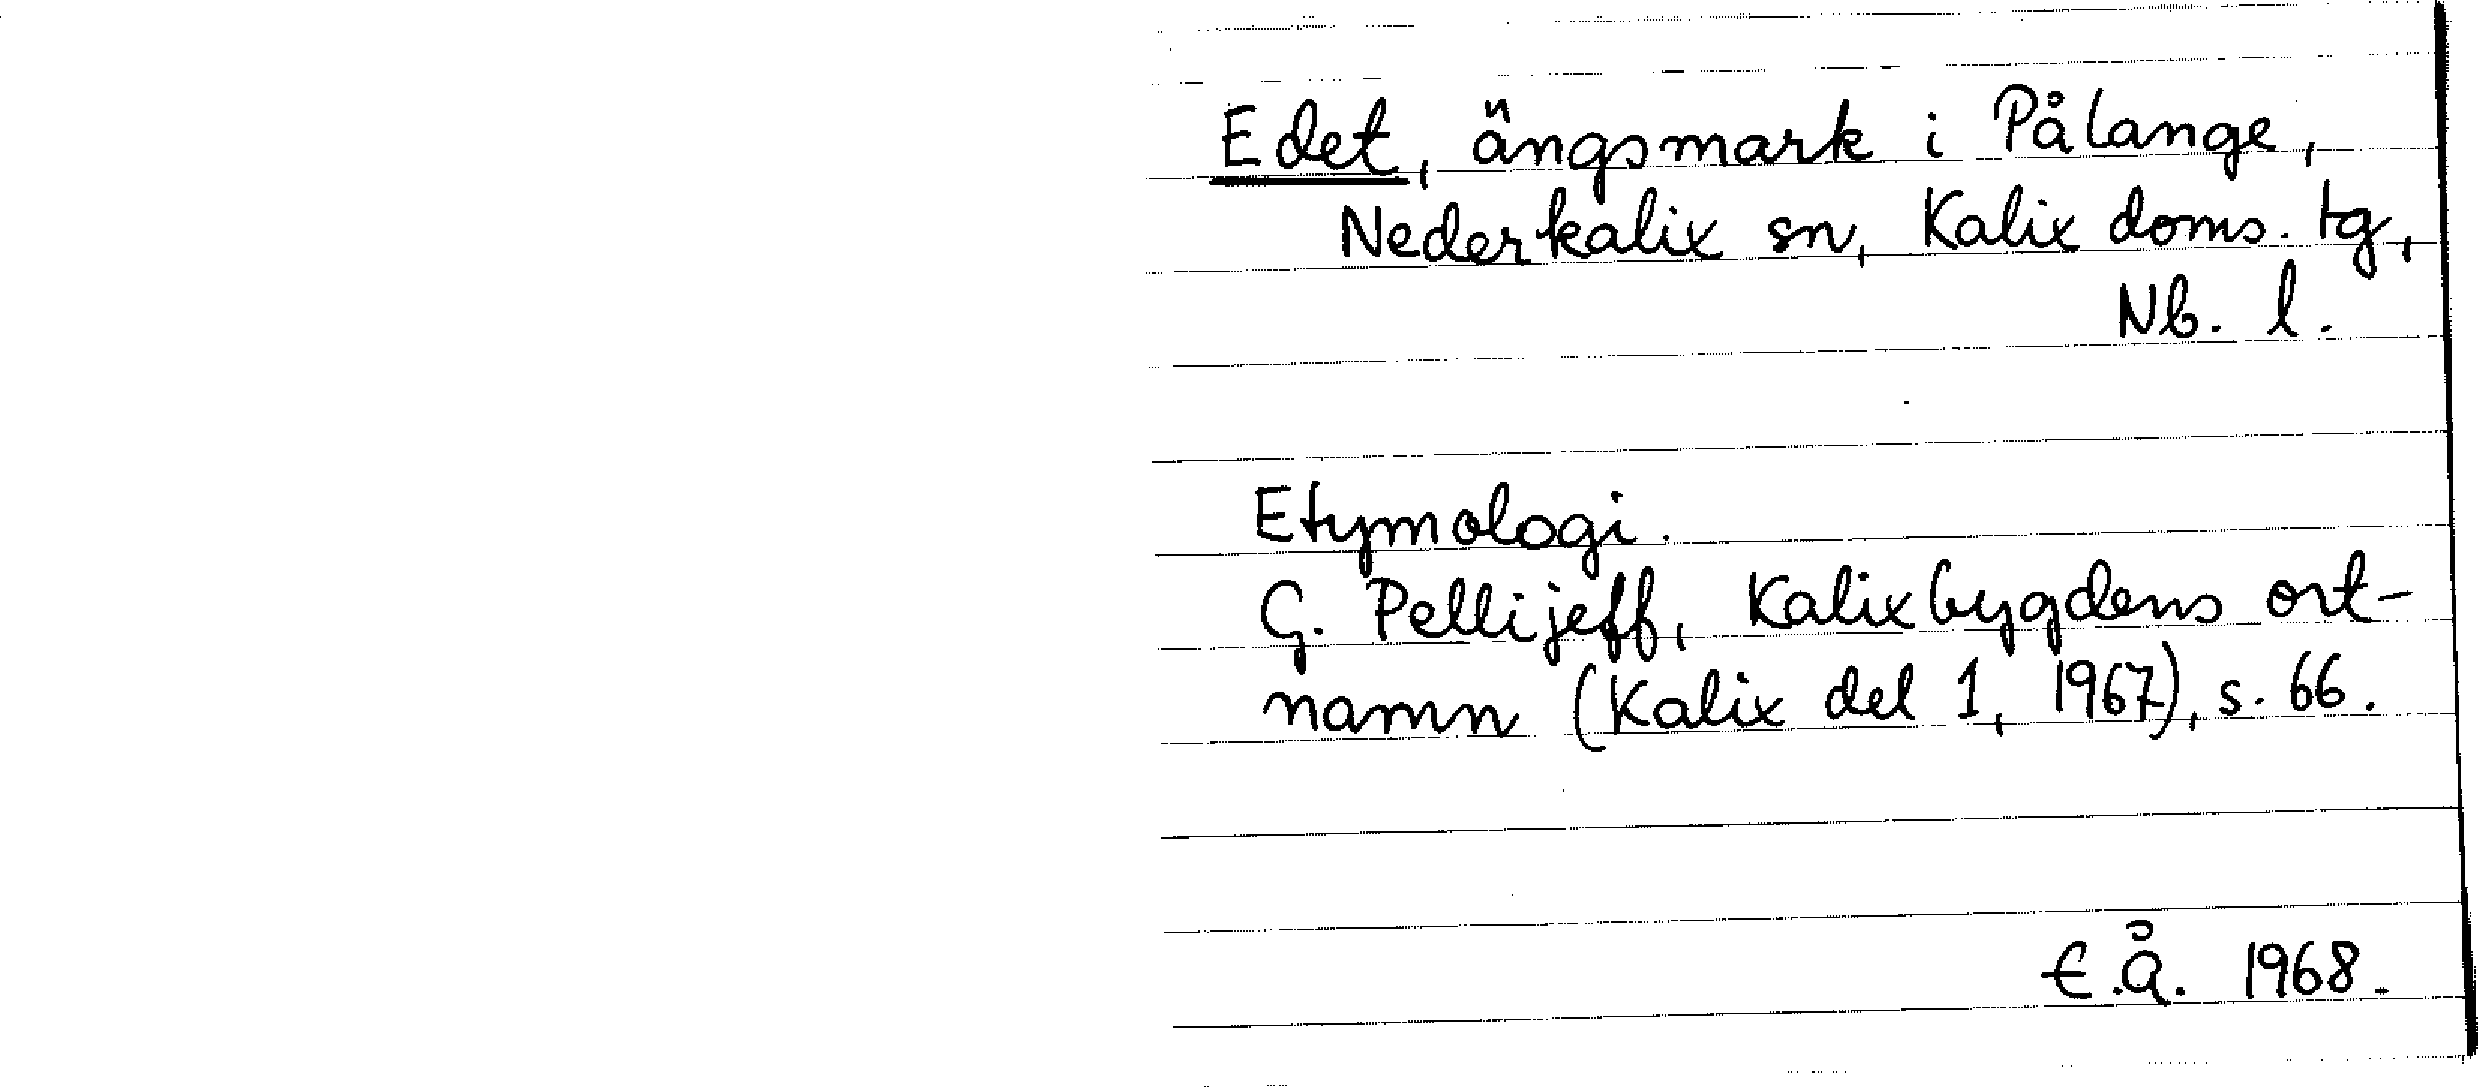 Edet, ängsmark i Pålange,
Nederkalix sn, Kalix doms. tg,
Nb. l.
Etymologi.
G. Pellijeff, Kalixbygdens ort-
namn (Kalix del 1, 1967), s. 66.
E.Å. 1968.